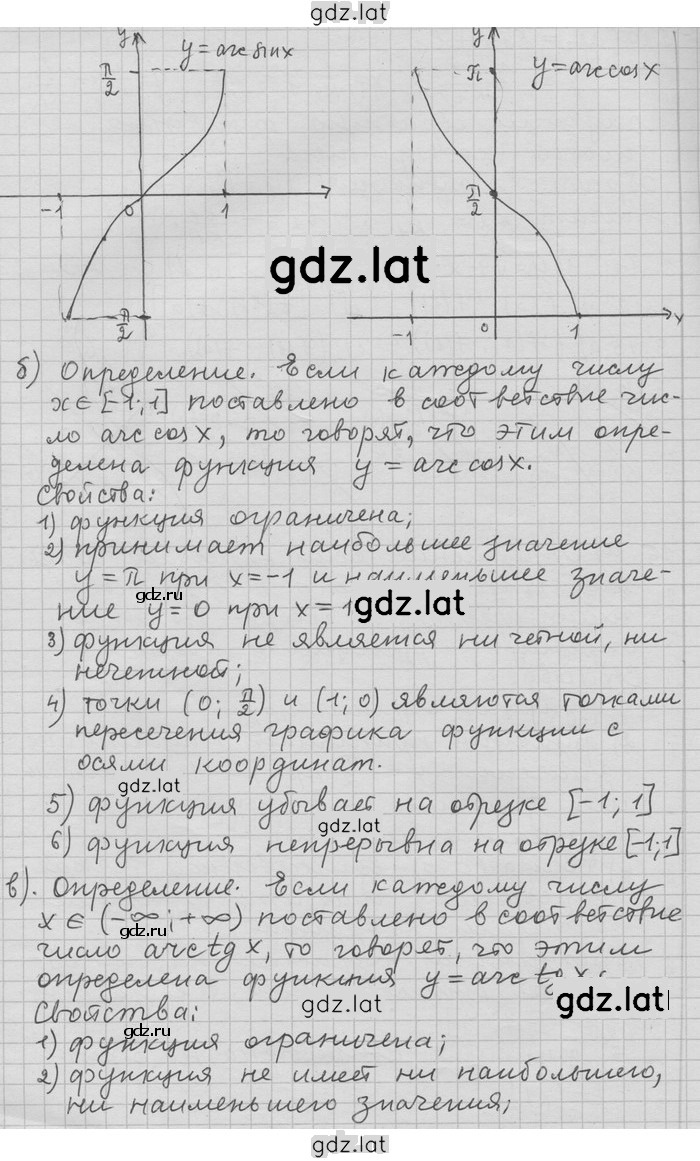 gdz.lat
y
y = arcsinx
π/2
-1
0
1
-π/2
y
y = arccosx
π
π/2
-1
0
1
x
gdz.lat
б) Определение. Если каждому числу
x ∈ [-1; 1] поставлено в соответствие чис-
ло arccosx, то говорят, что этим опре-
делена функция y = arccosx.
Свойства:
1) функция ограничена;
2) принимает наибольшее значение
y = π при x = -1 и наименьшее значе-
ние y = 0 при x = 1
gdz.ru
gdz.lat
3) функция не является ни четной, ни
нечетной;
4) точки (0; π/2) и (1; 0) являются точками
пересечения графика функции с
осями координат.
gdz.lat
5) функция убывает на отрезке [-1; 1]
gdz.lat
6) функция непрерывна на отрезке [-1; 1]
в). Определение. Если каждому числу
x ∈ (-∞; +∞) поставлено в соответствие
gdz.lat
число arctg x, то говорят, что этим
определена функция y = arctg x.
gdz.lat
gdz.lat
Свойства:
gdz.ru
1) функция ограничена;
2) функция не имеет ни наибольшего,
ни наименьшего значения;
gdz.lat